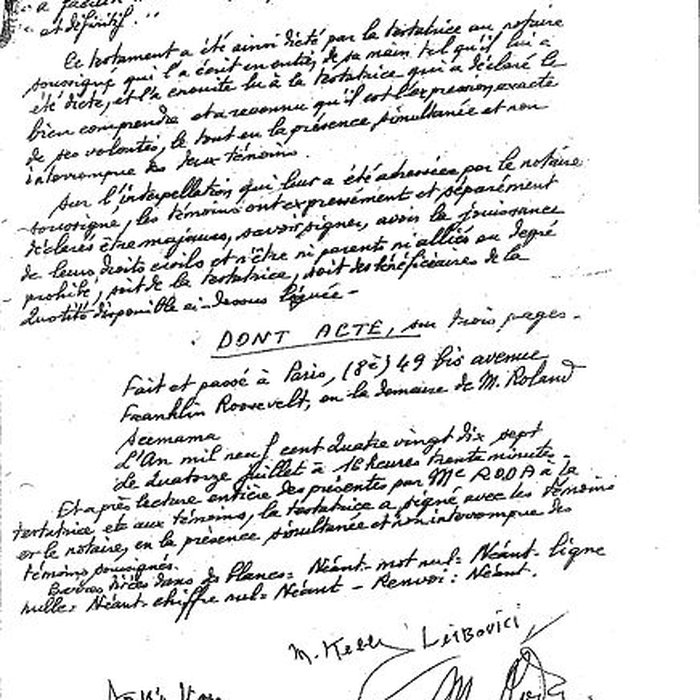 et définitif."
Ce testament a été ainsi dicté par la testatrice au notaire
soussigné qui l'a écrit en entier de sa main tel qu'il lui a
été dicté, et l'a ensuite lu à la testatrice qui a déclaré le
bien comprendre et a reconnu qu'il est l'expression exacte
de ses volontés, le tout en la présence simultanée et non
interrompue des deux témoins.
Sur l'interpellation qui leur a été adressée par le notaire
soussigné, les témoins ont expressément et séparément
déclaré être majeurs, savoir signer, avoir la jouissance
de leurs droits civils et n'être ni parents ni alliés au degré
prohibé, soit de la testatrice, soit des bénéficiaires de la
quotité disponible ci-dessus léguée -
DONT ACTE, sur trois pages -
Fait et passé à Paris, (8è) 49 bis avenue
Franklin Roosevelt, en la demeure de M. Roland
Scemama
L'An mil neuf cent quatre vingt dix sept
Le Quatorze juillet à 16 heures trente minutes -
Et après lecture entière des présentes par Me RODA à la
testatrice et aux témoins, la testatrice a signé avec les témoins
et le notaire, en la présence simultanée et non interrompue des
témoins soussignés.
Barres tirées dans des blancs = Néant - mot nul = Néant - ligne
nulle = Néant - chiffre nul = Néant - Renvoi : Néant.
M. Kelli Leibovici